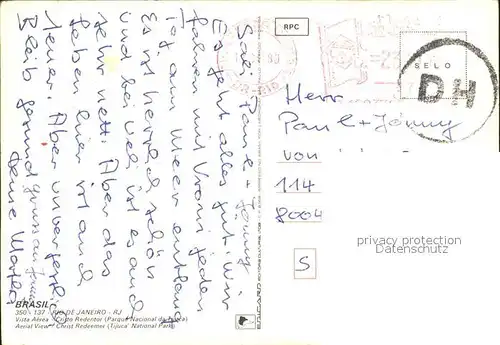 RPC
SELO
DH
Herr
Paul + Jonny
von
114
8004
S
privacy protection
watermark
Sali Paul + Jonny
Es geht alles gut. Wir
fahren mit Vroni jeden
Tag am Meer entlang
Es ist herrlich schön
und bei Veli ist es auch
sehr nett. Aber das
Leben hier ist auch
teuer. Aber unvergesslich
Bleib gesund
Deine Martha
BRASIL
350 - 137 - RIO DE JANEIRO - RJ
Vista Aérea - Cristo Redentor (Parque Nacional da Tijuca)
Aerial View - Christ Redeemer (Tijuca' National Park)